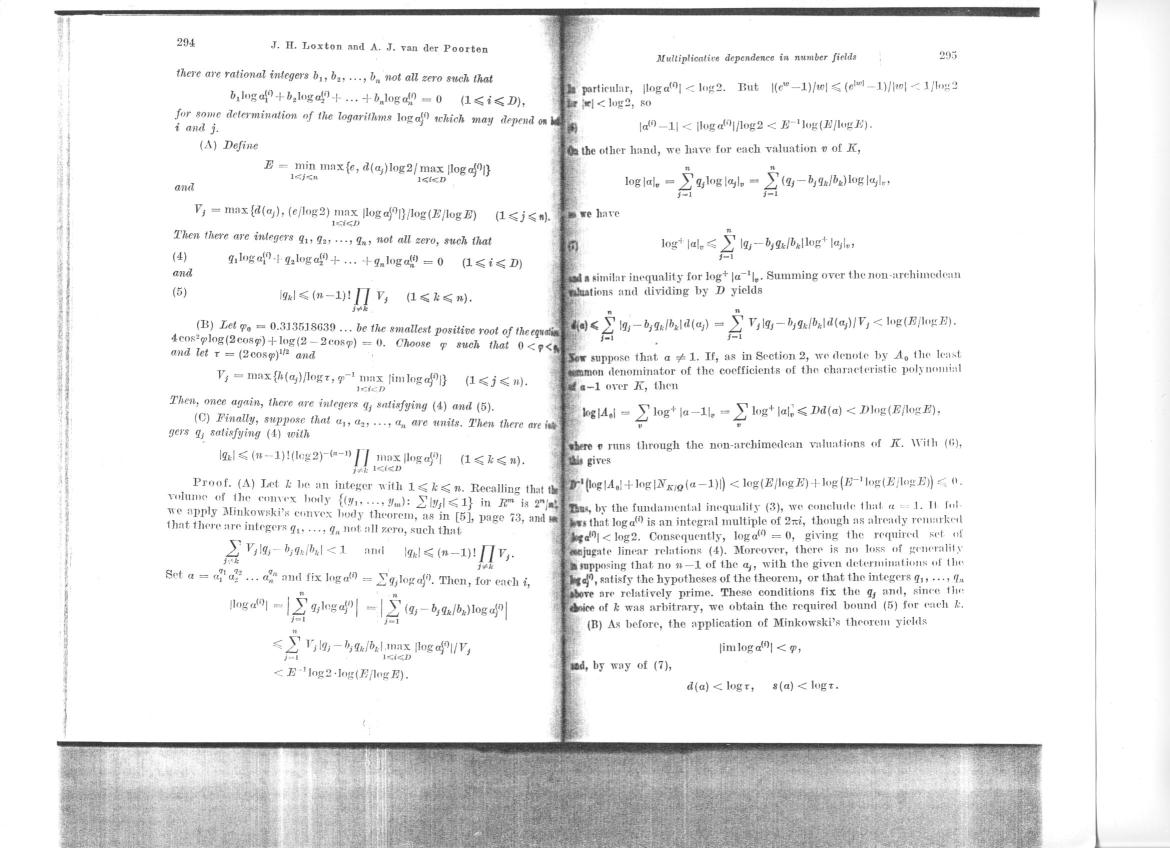 294
J. H. Loxton and A. J. van der Poorten
there are rational integers b₁, b₂, ..., bₙ not all zero such that
b₁log α₁⁽ⁱ⁾ + b₂log α₂⁽ⁱ⁾ + ... + bₙlog αₙ⁽ⁱ⁾ = 0 (1 ⩽ i ⩽ D),
for some determination of the logarithms log αⱼ⁽ⁱ⁾ which may depend on
i and j.
(A) Define
E = min_{1⩽j⩽n} max{e, d(αⱼ)log2/max_{1⩽i⩽D} |log αⱼ⁽ⁱ⁾|}
and
Vⱼ = max{d(αⱼ), (e/log2) max_{1⩽i⩽D} |log αⱼ⁽ⁱ⁾|}/log(E/logE) (1 ⩽ j ⩽ n).
Then there are integers q₁, q₂, ..., qₙ, not all zero, such that
(4) q₁log α₁⁽ⁱ⁾ + q₂log α₂⁽ⁱ⁾ + ... + qₙlog αₙ⁽ⁱ⁾ = 0 (1 ⩽ i ⩽ D)
and
(5) |qₖ| ⩽ (n−1)! ∏_{j≠k} Vⱼ (1 ⩽ k ⩽ n).
(B) Let φ₀ = 0.313518639 ... be the smallest positive root of the
4cos²φlog(2cosφ)+log(2−2cosφ) = 0. Choose φ such that 0 < φ <
and let τ = (2cosφ)^{1/2} and
Vⱼ = max{h(αⱼ)/logτ, φ⁻¹ max_{1⩽i⩽D} |im log αⱼ⁽ⁱ⁾|} (1 ⩽ j ⩽ n).
Then, once again, there are integers qⱼ satisfying (4) and (5).
(C) Finally, suppose that α₁, α₂, ..., αₙ are units. Then there are
gers qⱼ satisfying (4) with
|qₖ| ⩽ (n−1)!(log2)^{−(n−1)} ∏_{j≠k} max_{1⩽i⩽D} |log αⱼ⁽ⁱ⁾| (1 ⩽ k ⩽ n).
Proof. (A) Let k be an integer with 1 ⩽ k ⩽ n. Recalling that
volume of the convex body {(y₁, ..., yₘ): ∑|yⱼ| ⩽ 1} in Rᵐ is 2ᵐ/m!,
we apply Minkowski's convex body theorem, as in [5], page 73, and
that there are integers q₁, ..., qₙ not all zero, such that
∑_{j≠k} Vⱼ|qⱼ − bⱼqₖ/bₖ| < 1 and |qₖ| ⩽ (n−1)! ∏_{j≠k} Vⱼ.
Set α = α₁^{q₁} α₂^{q₂} ... αₙ^{qₙ} and fix log α⁽ⁱ⁾ = ∑qⱼlog αⱼ⁽ⁱ⁾. Then, for each i,
|log α⁽ⁱ⁾| = |∑_{j=1}^{n} qⱼlog αⱼ⁽ⁱ⁾| = |∑_{j=1}^{n} (qⱼ − bⱼqₖ/bₖ)log αⱼ⁽ⁱ⁾|
⩽ ∑_{j=1}^{n} Vⱼ|qⱼ − bⱼqₖ/bₖ| max_{1⩽i⩽D} |log αⱼ⁽ⁱ⁾|/Vⱼ
< E⁻¹log2·log(E/logE).
Multiplicative dependence in number fields
295
particular, |log α⁽ⁱ⁾| < log2. But |(eʷ−1)/w| ⩽ (e^{|w|}−1)/|w| < 1/log2
|w| < log2, so
|α⁽ⁱ⁾−1| < |log α⁽ⁱ⁾|/log2 < E⁻¹log(E/logE).
the other hand, we have for each valuation v of K,
log|α|ᵥ = ∑_{j=1}^{n} qⱼlog|αⱼ|ᵥ = ∑_{j=1}^{n} (qⱼ−bⱼqₖ/bₖ)log|αⱼ|ᵥ,
we have
(7) log⁺|α|ᵥ ⩽ ∑_{j=1}^{n} |qⱼ−bⱼqₖ/bₖ|log⁺|αⱼ|ᵥ,
a similar inequality for log⁺|α⁻¹|ᵥ. Summing over the non-archimedean
and dividing by D yields
d(α) ⩽ ∑_{j=1}^{n} |qⱼ−bⱼqₖ/bₖ|d(αⱼ) = ∑_{j=1}^{n} Vⱼ|qⱼ−bⱼqₖ/bₖ|d(αⱼ)/Vⱼ < log(E/logE).
suppose that α ≠ 1. If, as in Section 2, we denote by A₀ the least
denominator of the coefficients of the characteristic polynomial
α−1 over K, then
log|A₀| = ∑_v log⁺|α−1|ᵥ = ∑_v log⁺|α|ᵥ ⩽ Dd(α) < Dlog(E/logE),
where v runs through the non-archimedean valuations of K. With (6),
gives
D⁻¹(log|A₀|+log|N_{K/Q}(α−1)|) < log(E/logE)+log(E⁻¹log(E/logE)) ⩽ 0.
Thus, by the fundamental inequality (3), we conclude that α = 1. It fol-
that log α⁽ⁱ⁾ is an integral multiple of 2πi, though as already remarked
< log2. Consequently, log α⁽ⁱ⁾ = 0, giving the required set of
linear relations (4). Moreover, there is no loss of generality
supposing that no n−1 of the αⱼ, with the given determinations of the
satisfy the hypotheses of the theorem, or that the integers q₁, ..., qₙ
above are relatively prime. These conditions fix the qⱼ and, since the
of k was arbitrary, we obtain the required bound (5) for each k.
(B) As before, the application of Minkowski's theorem yields
|im log α⁽ⁱ⁾| < φ,
by way of (7),
d(α) < logτ, s(α) < logτ.